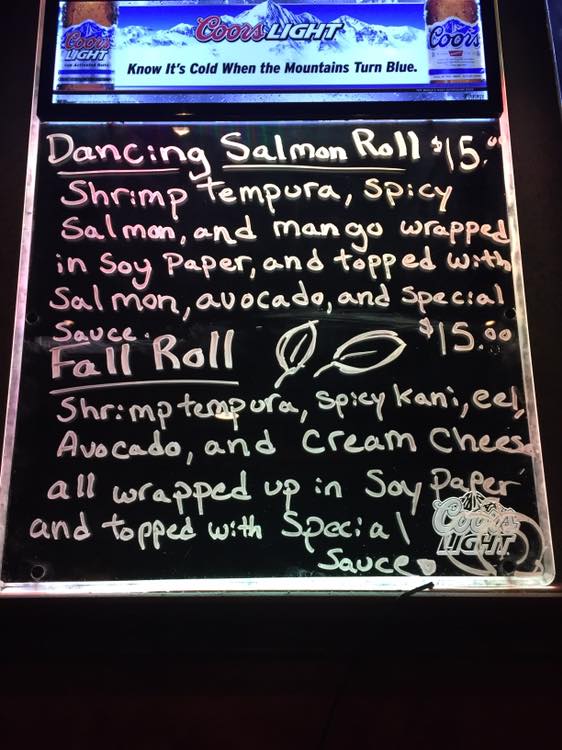 Coors LIGHT
Coors LIGHT
Coors
Know It's Cold When the Mountains Turn Blue.
Dancing Salmon Roll $15.00
Shrimp tempura, spicy
Salmon, and mango wrapped
in Soy Paper, and topped with
Salmon, avocado, and Special
Sauce.
$15.00
Fall Roll
Shrimp tempura, spicy kani, eel,
Avocado, and Cream Chees
all wrapped up in Soy Paper
and topped with Special
Sauce.
Coors LIGHT